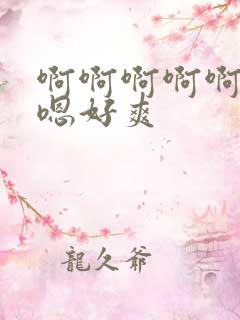 啊啊啊啊啊
嗯好爽
龍久爺